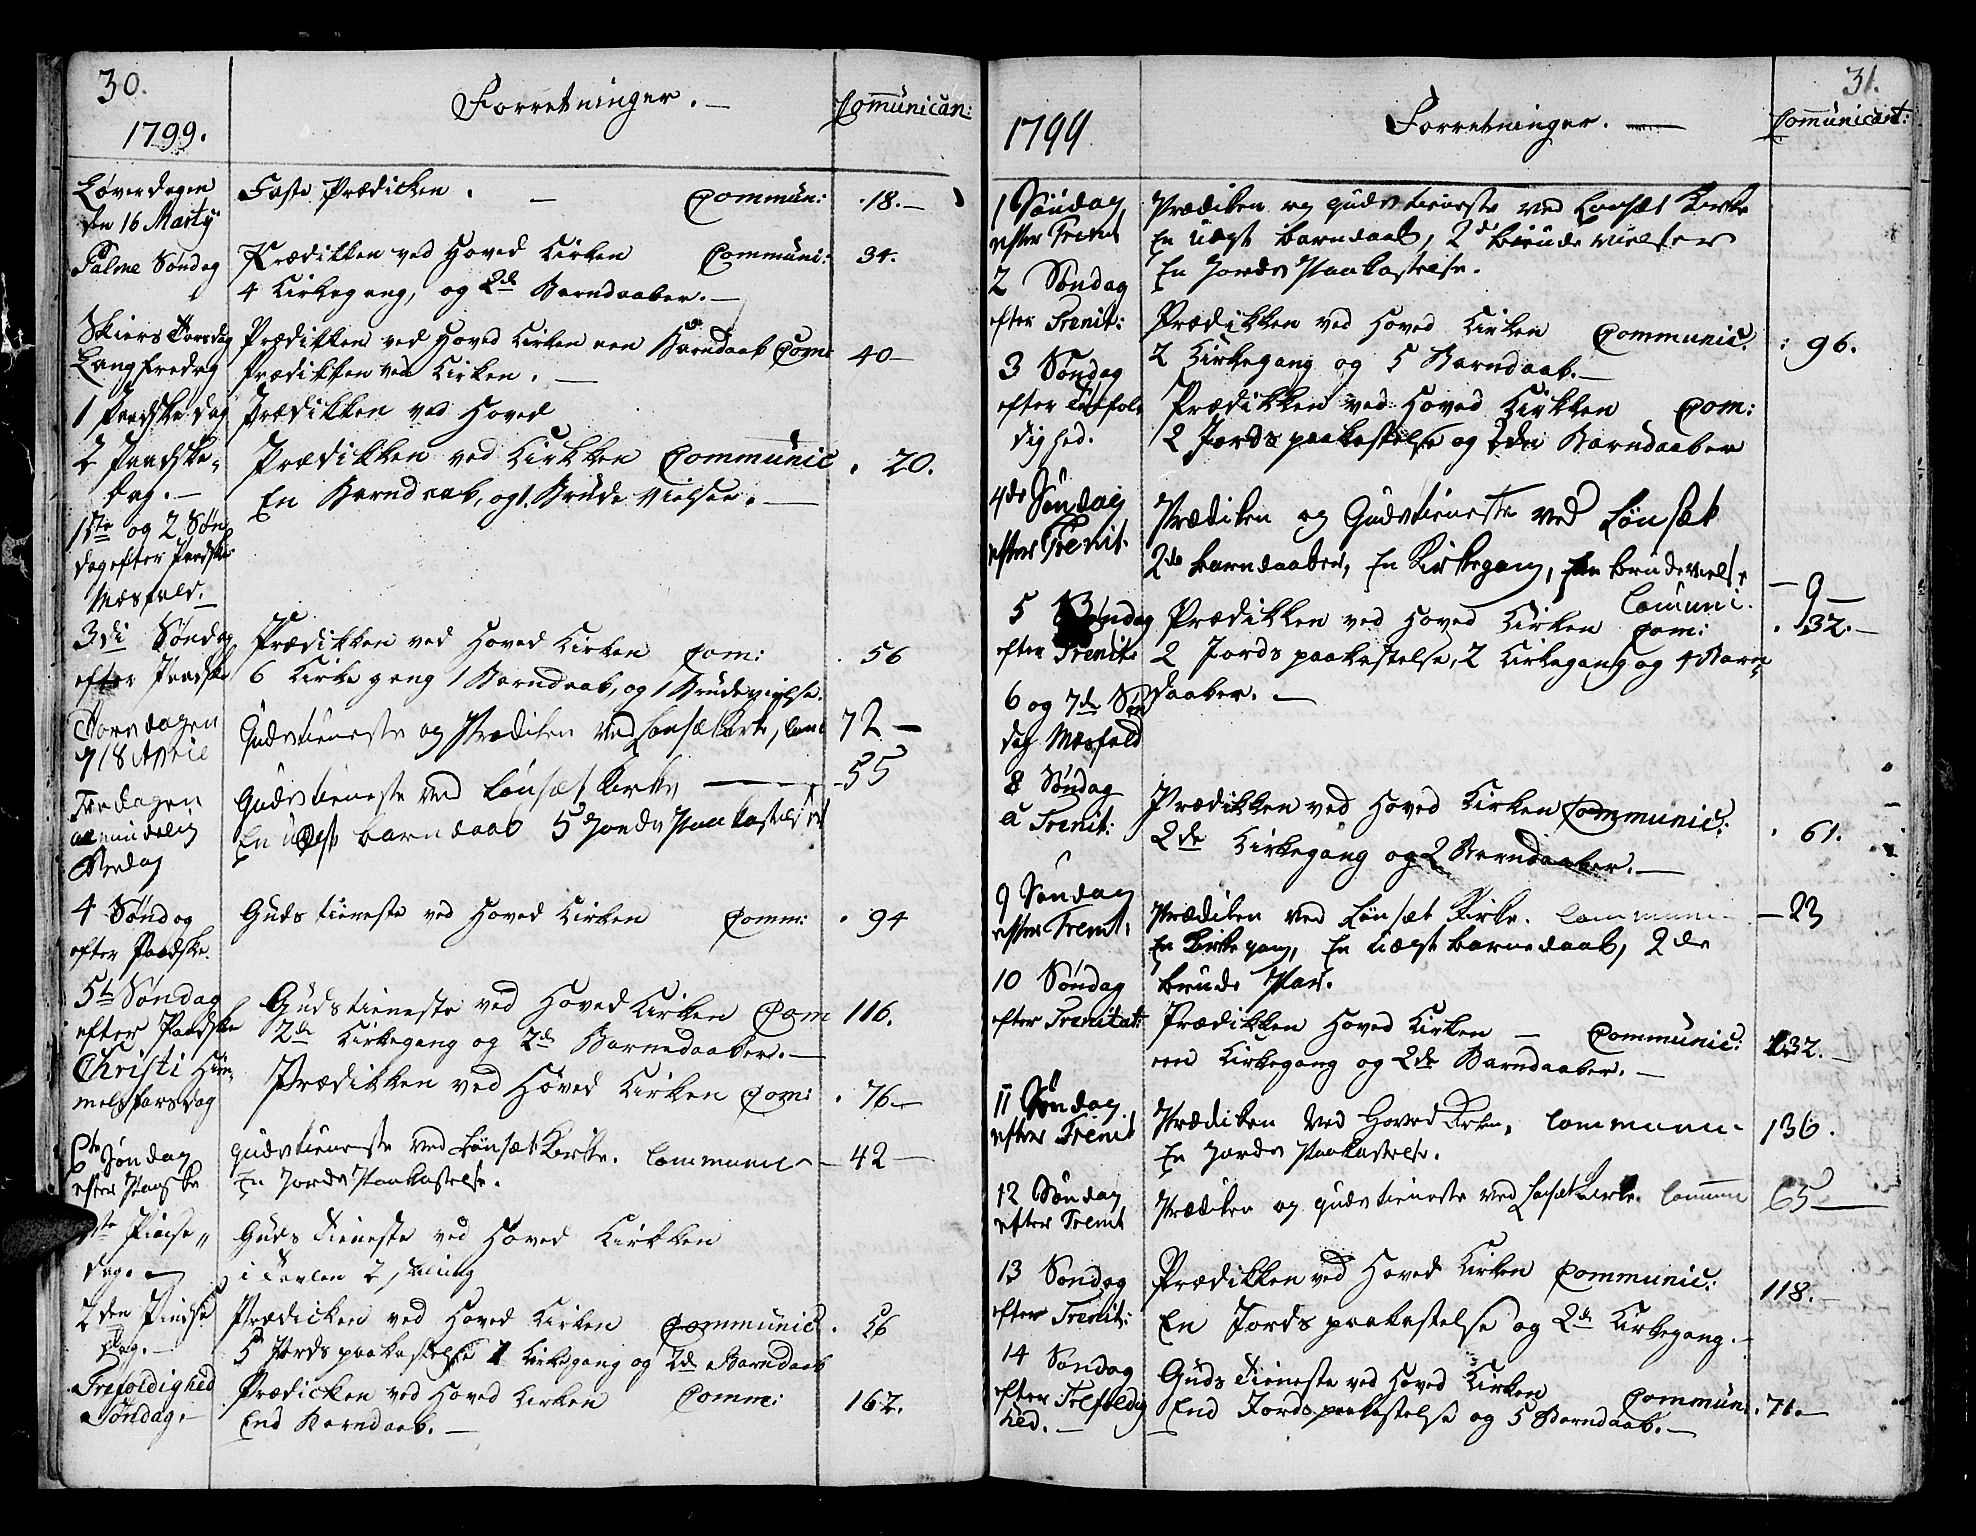 30.
1799.
Forretninger. —
Communican:
Løverdagen
den 16 Marty
Faste Prædicken. — Commun: 18. —
Palme Søndag
Prædikken ved Hoved Kirken Communi: 34.
4 Kirkegang, og 2de Barndaaber. —
Skiers Torsdag
Prædikken ved Hoved Kirken een Barndaab Com: 40 —
Langfredag
Prædikken ved Kirken. —
1 Paadske dag
Prædikken ved Hoved
2 Paadske,,
dag. —
Prædikken ved Kirkken Communic. 20.
En Barndaab, og 1 Brude Vielse. —
1ste og 2 Søn
dag efter Paadske
Mæsfald. —
3di Søndag
efter Paadske
Prædikken ved Hoved Kirken Com: 56
6 Kirkegang 1 Barndaab, og 1 Brudevielse.
Torsdagen
18 April
Gudstieneste og Prædiken ved Lonset Kirke, Com 72 —
Fredagen
almindelig
Bededag
Gudstieneste ved Lønset Kirke — 55
En uægte barndaab 5 Jords Paakastelser
4 Søndag
efter Paadske.
Guds tieneste ved Hoved Kirken Comm: 94
5te Søndag
efter Paadske
Guds tieneste ved Hoved Kirken Com 116.
2de Kirkegang og 2de Barnedaaber. —
Christi Him,,
melfartsdag
Prædikken ved Hoved Kirken Com: 76. —
6te Søndag
efter Paaske
gudstieneste ved Lønset Kirke. Communic — 42 —
En Jords Paakastelse.
1ste Pintse,,
dag. —
Guds Tieneste ved Hoved Kirkken
2den Pindse
dag. —
Prædicken ved Hoved Kirken Communic. 56
5 Jords paakastelse 1 Kirkegang og 2de Barndaab
Trefoldighed
Søndag. —
Prædicken ved Hoved Kirken Comm: 162.
End Barndaab. —
31.
1799
Forretninger. —
Communicant:
1 Søndag
efter Trenit
Prædiken og gudstieneste ved Lonset Kirke
En uægte barndaab, 2de brudevielser
En Jords Paakastelse.
2 Søndag
efter Trenit:
Prædikken ved Hoved Kirken Communic: 96.
2 Kirkegang og 5 Barndaab. —
3 Søndag
efter Trefol
dighed.
Prædikken ved Hoved Kirkken Com:
2 Jords paakastelse og 2de Barndaaber
4de Søndag
efter Trenit.
Prædiken og Gudstieneste ved Lønset
2de barndaaber, En Kirkegang, En brudevielse
Communi. — 9 —
5 Søndag
efter Trenit:
Prædikken ved Hoved Kirken Com: 132. —
2 Jords paakastelse, 2 Kirkegang og 4 Barn,,
daaber. —
6 og 7de Søn
dag Mæsfald
8 Søndag
a Trenit:
Prædikken ved Hoved Kirken Communic: 61.
2de Kirkegang og 2 Barndaaber. —
9 Søndag
efter Trenit:
Prædiken ved Lønset Kirke. Communi — 23
En Kirkegang, En uægte barnedaab, 2de
brude Par.
10 Søndag
efter Trenitat:
Prædikken Hoved Kirken — Communic: 132. —
een Kirkegang og 2de Barndaaber. —
11 Søndag
efter Trenit
Prædiken ved Hoved Kirken, Communi — 136.
En Jords Paakastelse.
12 Søndag
efter Trenit
Prædiken og gudstieneste ved Lonset Kirke. Communi 65 —
13 Søndag
efter Trenit:
Prædikken ved Hoved Kirken Communic: 118. —
En Jords paakastelse og 2de Kirkegang. —
14 Søndag
efter Trefoldig
hed. —
Guds Tieneste ved Hoved Kirken Commun: 71. —
End Jords paakastelse og 5 Barndaab. —